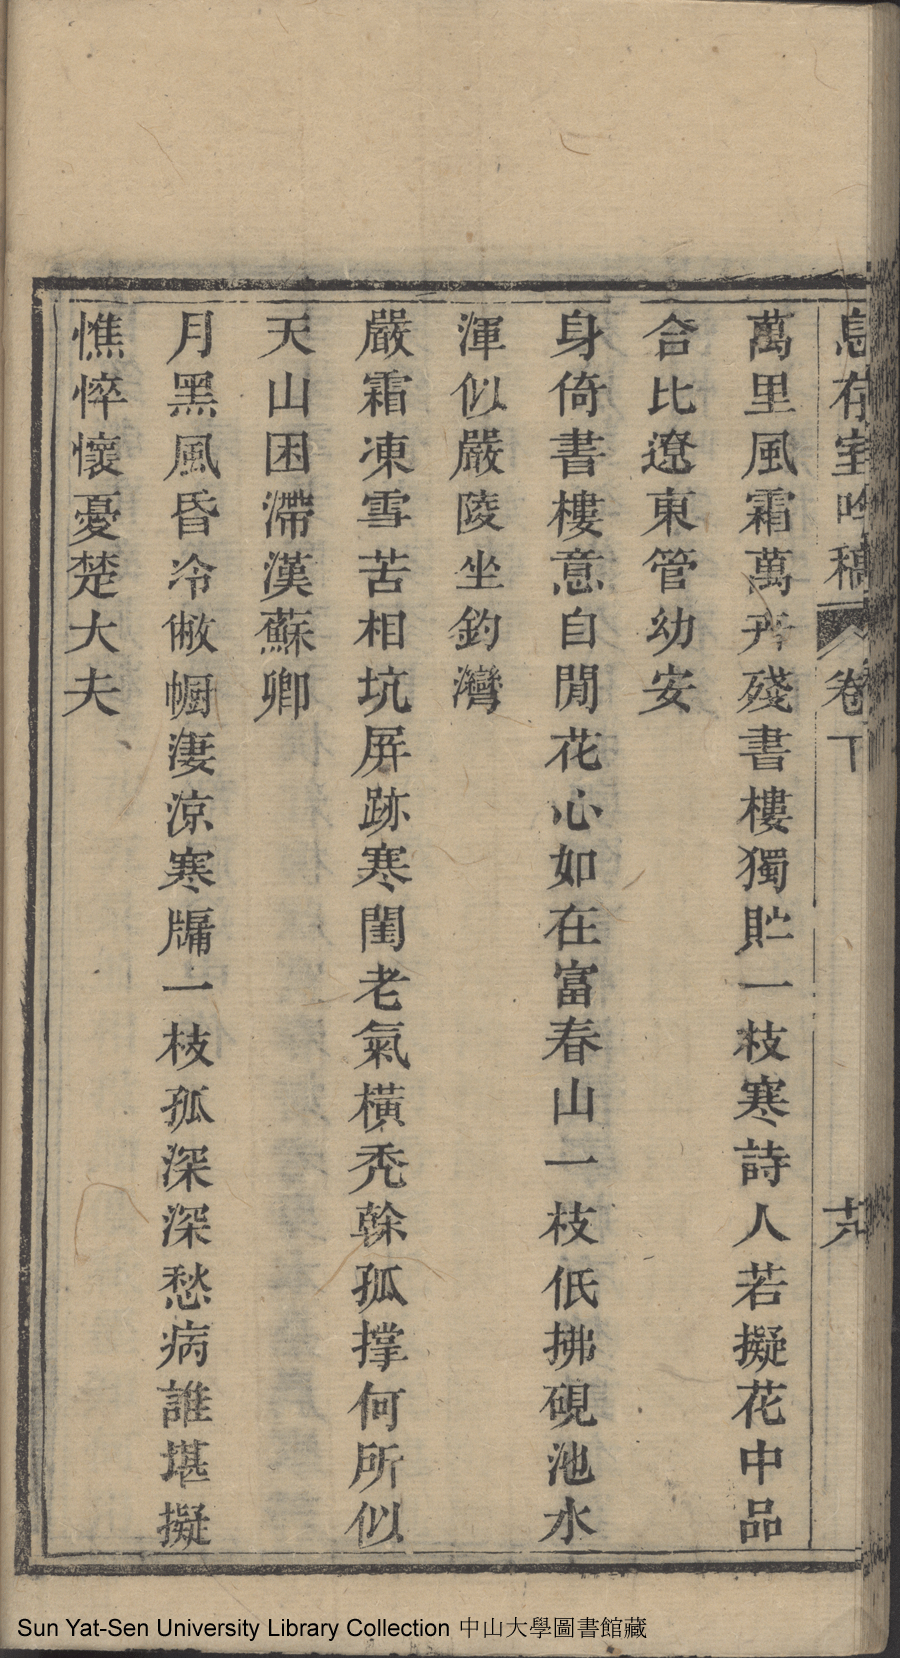 息存室吟稿 卷下 十九
萬里風霜萬卉殘書樓獨貯一枝寒詩人若擬花中品
合比遼東管幼安
身倚書樓意自閒花心如在富春山一枝低拂硯池水
渾似嚴陵坐釣灣
嚴霜凍雪苦相坑屏跡寒閨老氣橫禿榦孤撑何所似
天山困滯漢蘇卿
月黑風昏冷敝幮淒涼寒牖一枝孤深深愁病誰堪擬
憔悴懷憂楚大夫
Sun Yat-Sen University Library Collection 中山大學圖書館藏